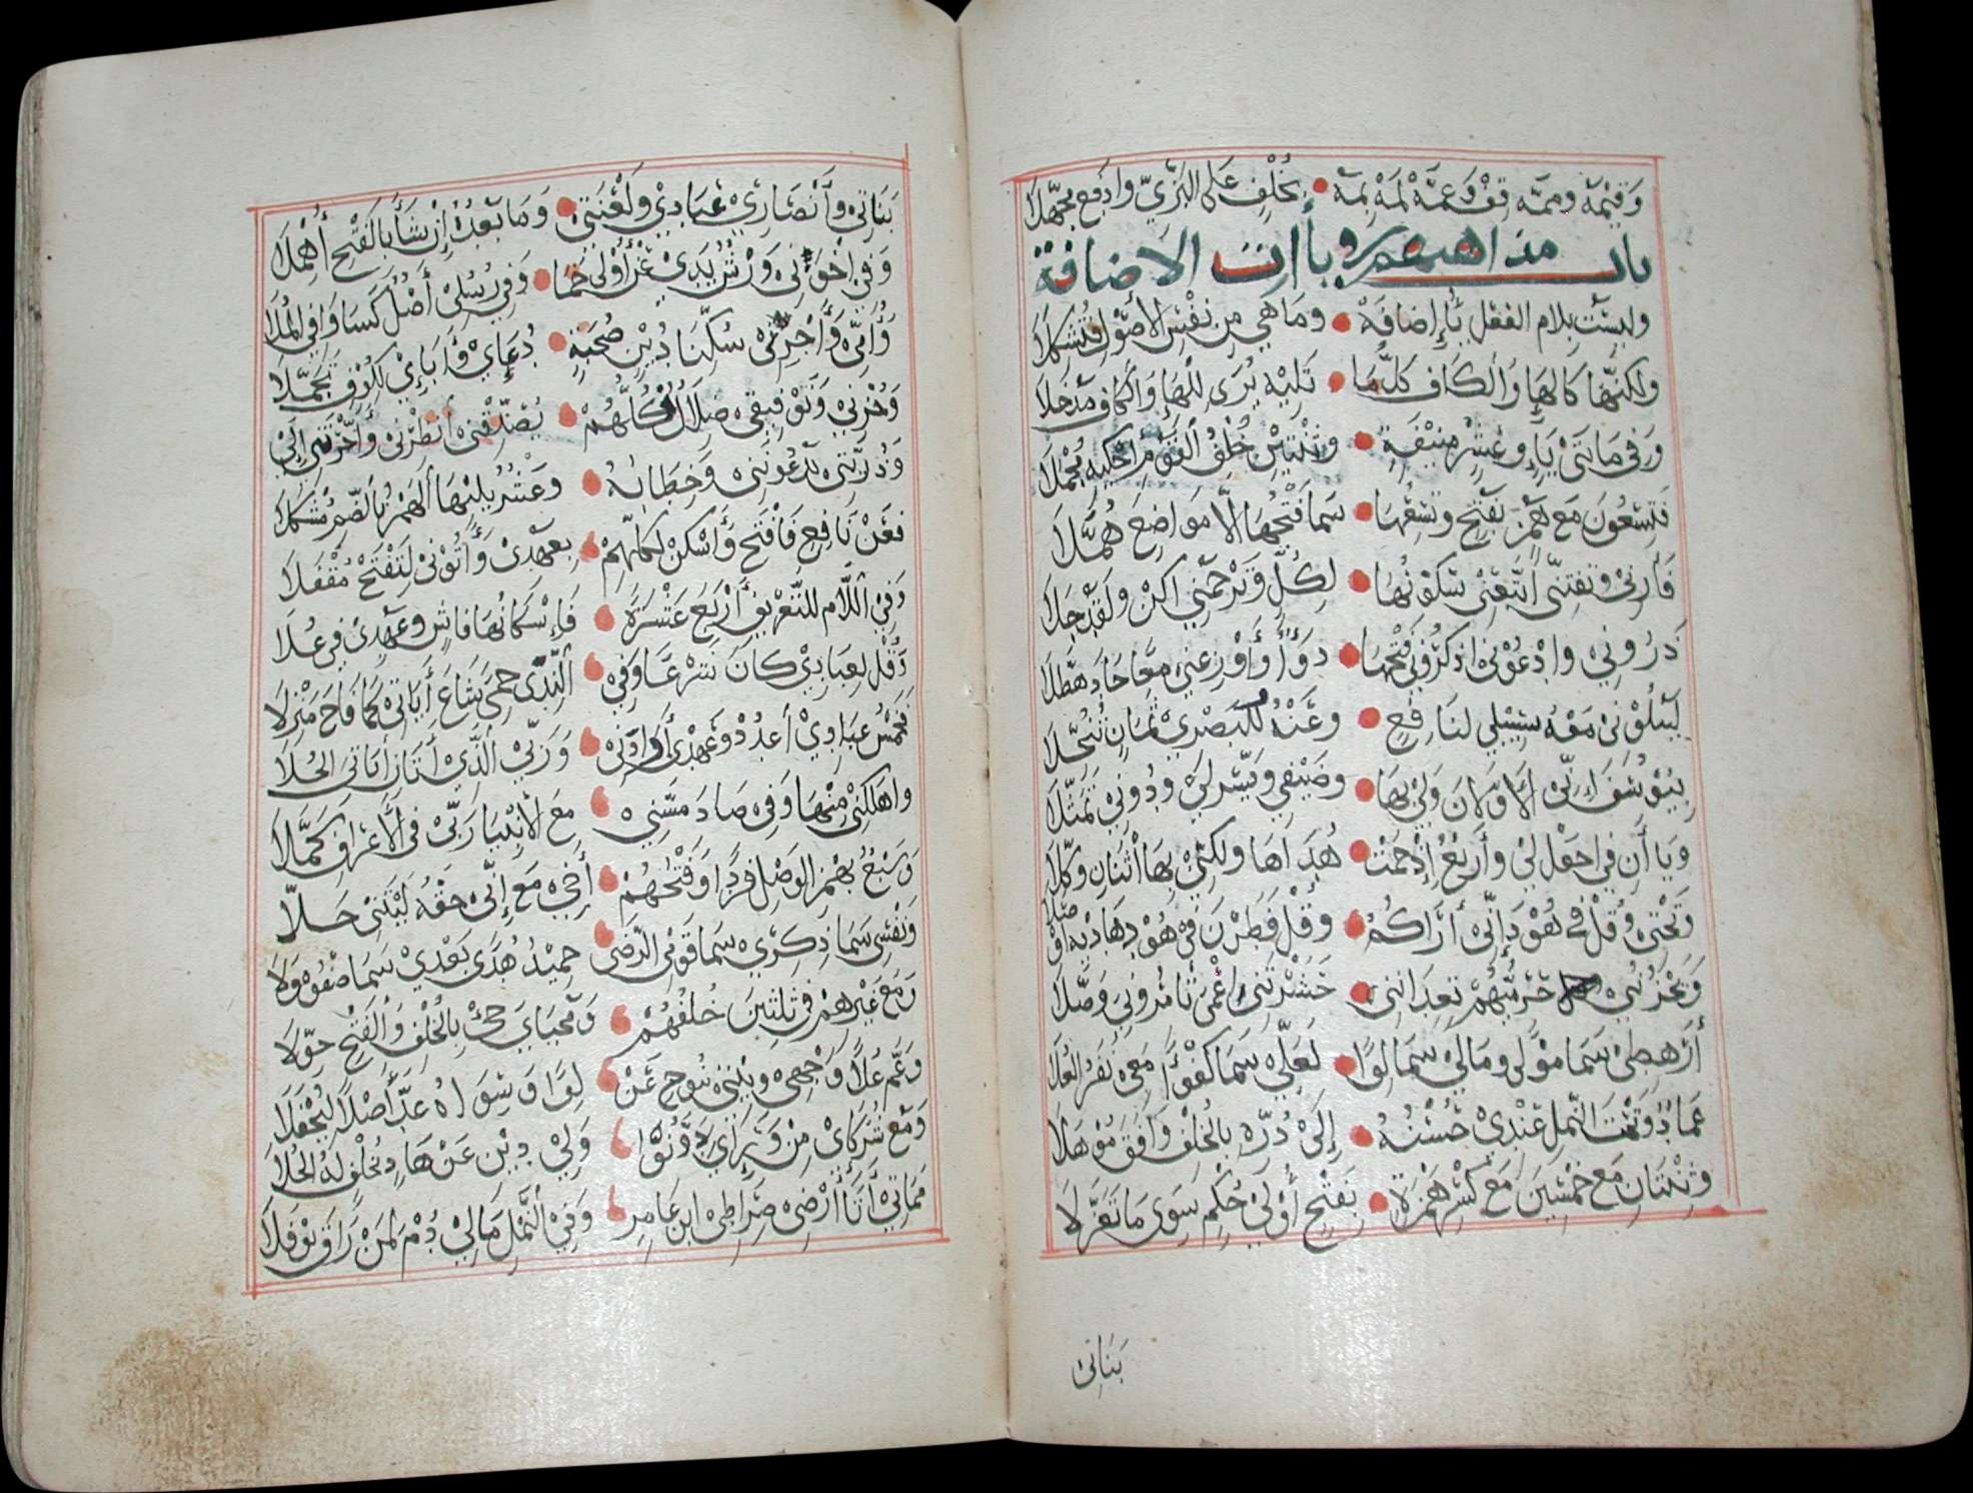 وَفِيمَهْ وَمِمَّهْ قِفْ وَعَمَّهْ لِمَهْ بِمَهْ بِخُلْفٍ عَلَى الْبَزِّيِّ وَادْفَعْ مُجَهِّلَا
باب مذاهبهم وياآت الاضافة
وليست بلام الفعل يَاءُ إِضَافَةٍ وَمَا هِيَ مِنْ نَفْسِ الأُصُولِ فَتُشْكِلَا
ولكنّها كَالهَا وَالكَافِ كُلُّ مَا تَلِيهِ يُرَى لِلْهَا وَالكَافِ مَدْخَلَا
وَفِي مَائَتَيْ يَاءٍ وَعَشْرٍ مُنِيفَةٍ وَثِنْتَيْنِ خُلْفُ القَوْمِ أَحْكِيهِ مُجْمَلَا
فَتِسْعُونَ مَع هَمْزٍ بِفَتْحٍ وَتِسْعُهَا سَمَا فَتْحُهَا إِلَّا مَوَاضِعَ هُمَّلَا
فَأَرْنِي وَتَفْتِنِّي اتَّبِعْنِي سُكُونُهَا لِكُلٍّ وَتَرْحَمْنِي اكُنْ وَلَقَدْ جَلَا
ذَرُونِي وَادْعُونِي اذْكُرُونِي فَتْحُهَا دَوَاءٌ وَأَوْزِعْنِي مَعًا جَادَ هُطَّلَا
لِيَبْلُوَنِي مَعْهُ سَبِيلِي لِنَافِعٍ وَعَنْهُ لِلْبَصْرِي ثَمَانٍ تُنُخِّلَا
بِيُوسُفَ إِنِّي الأَوَّلَانِ وَلِي بِهَا وَضَيْفِي وَيَسِّرْ لِي وَدُونِي تَمَثَّلَا
وَيَاآنِ فِي اجْعَلْ لِي وَأَرْبَعُ إِذْ حَمَتْ هُدَاهَا وَلَكِنِّي بِهَا اثْنَانِ وُكِّلَا
وَتَحْتِي وَقُلْ فِي هُودَ إِنِّي أَرَاكُمُ وَقُلْ فَطَرَنْ فِي هُودَ هَادِيهِ أَوْصَلَا
وَيَحْزُنُنِي حِرْمِيُّهُمْ تَعِدَانِنِي حَشَرْتَنِي أَعْمَى تَأْمُرُونِي وَصَّلَا
أَرَهْطِي سَمَا مَوْلًى وَمَالِي سَمَا لِوًا لَعَلِّي سَمَا كُفْؤًا مَعِي نَفَرُ العُلَا
عِمَادٌ وَتَحْتَ النَّمْلِ عِنْدِي حُسْنُهُ إِلَى دُرِّهِ بِالْخُلْفِ وَافَقَ مُوهَلَا
وَثِنْتَانِ مَع خَمْسِينَ مَع كَسْرِ هَمْزَةٍ بِفَتْحِ أُولِي حُكْمٍ سِوَى مَا تَعَزَّلَا
بَنَاتِي
بَنَاتِي وَأَنْصَارِي عِبَادِي وَلَعْنَتِي وَمَا بَعْدُ إِنْ شَأَ بِالفَتْحِ أُهْمِلَا
وَفِي إِخْوَتِي وَرْشٌ يَدِي عَنْ أُولِي حِمًا وَفِي رُسُلِي أَصْلٌ كَسَا وَافِي المُلَا
وَأُمِّي وَأَجْرِي سُكِّنَا دِينُ صُحْبَةٍ دُعَاءِي وَآبَاءِي لِكُوفٍ تَجَمَّلَا
وَحُزْنِي وَتَوْفِيقِي ظِلَالٌ كُلُّهُمْ يُصَدِّقْنِي أَنْظِرْنِي وَأَخَّرْتَنِي إِلَى
وَذُرِّيَّتِي يَدْعُونَنِي وَخِطَابُهُ وَعَشْرٌ يَلِيهَا الهَمْزُ بِالضَّمِّ مُشْكَلَا
فَعَنْ نَافِعٍ فَافْتَحْ وَأَسْكِنْ لِكُلِّهِمْ بِعَهْدِي وَآتُونِي لِتَفْتَحَ مُقْفَلَا
وَفِي اللَّامِ لِلتَّعْرِيفِ أَرْبَعَ عَشْرَةٍ فَإِسْكَانُهَا فَاشٍ وَعَهْدِي فِي عُلَا
وَقُلْ لِعِبَادِي كَانَ شَرْعًا وَفِي النِّدَى حِمًى شَاعَ آيَاتِي كَمَا فَاحَ مَنْزِلَا
فَخَمْسُ عِبَادِي أَعْدُدْ وَعَهْدِي أَرَادَنِي وَرَبِّي الَّذِي آتَانِ آيَاتِي الحُلَا
وَأَهْلَكَنِي مِنْهَا وَفِي صَادَ مَسَّنِي مَعَ الأَنْبِيَا رَبِّي فِي الأَعْرَافِ كَمَّلَا
وَسَبْعٌ بِهَمْزِ الوَصْلِ فَرْدًا وَفَتْحُهُمْ أَخِي مَعَ إِنِّي حَقُّهُ لَيْتَنِي حَلَا
وَنَفْسِي سَمَا ذِكْرِي سَمَا قَوْمِي الرِّضَى حَمِيدُ هُدًى بَعْدِي سَمَا صَفْوُهُ وَلَا
وَمَعْ غَيْرِ هَمْزٍ فِي ثَلَاثِينَ خُلْفُهُمْ وَمَحْيَايَ جِئْ بِالخُلْفِ وَالفَتْحُ خُوِّلَا
وَعَمَّ عُلًا وَجْهِي وَبَيْتِي بِنُوحَ عَنْ لِوًا وَسِوَاهُ عُدَّ أَصْلًا لِيُحْفَلَا
وَمَعْ شُرَكَايَ مِنْ وَرَائِي دَوَّنُوا وَلِي دِينِ عَنْ هَادٍ بِخُلْفٍ لَهُ الحُلَا
مَمَاتِي أَتَى أَرْضِي صِرَاطِي ابنُ عَامِرٍ وَفِي النَّمْلِ مَالِي دُمْ لِمَنْ رَاقَ نَوْفَلَا